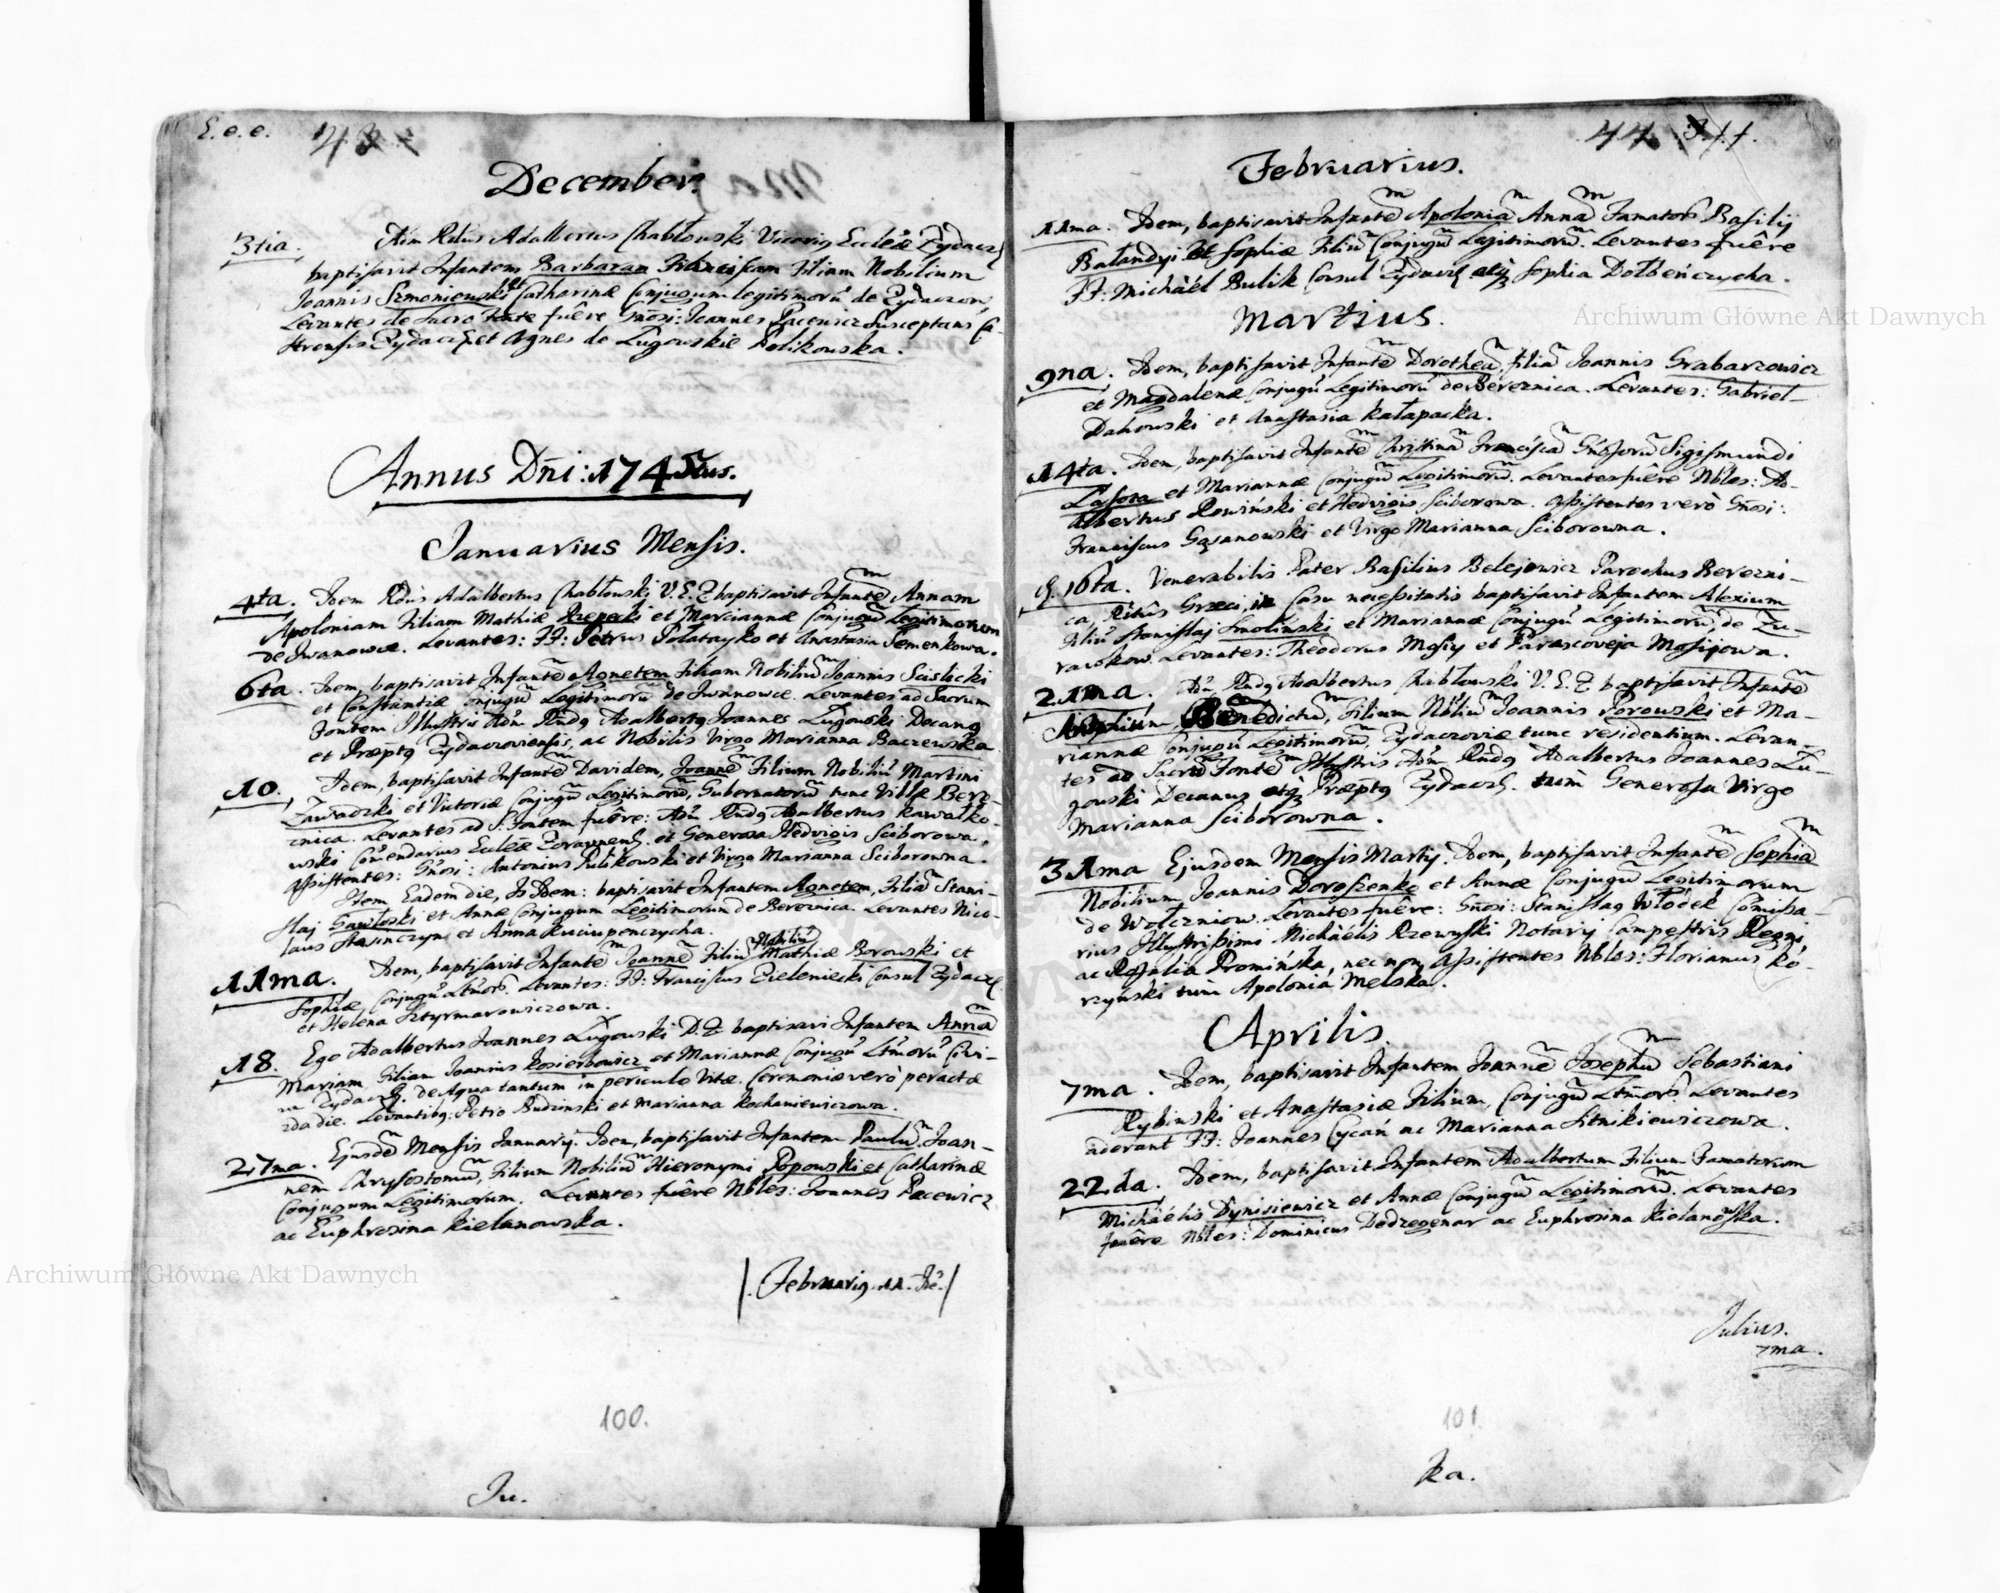 E. e. e. 43
December.
3tia. Adm Rdus Adalbertus Chabłowski Vicarig Eccłæ Żydacz
baptisavit Infantem Barbaram Franciscam Filiam Nobilium
Joannis Szmoniewski et Catharinæ Conjugum legitimorũ de Zydaczow,
Levantes de Sacro Fonte fuêre Gñosi: Joannes Pacewicz Susceptans Ca-
strensis Zydacz. et Agnes de Ługowskie Polikowska.
Annus Dñi: 1745tus.
Januarius Mensis.
4ta. Idem Rdus Adalbertus Chabłowski V. E. Z. baptisavit Infantẽ Annam
Apoloniam Filiam Mathiæ Rzepecki et Mariannæ Conjugũ Legitimorum
de Iwanowce. Levantes: FF: Petrus Połatayko et Anastasia Semenkowa.
6ta. Idem, baptisavit Infantẽ Agnetem Filiam Nobiliũ Joannis Scislicki
et Constantiæ Conjugũ Legitimorũ de Iwanowce. Levantes ad Sacrum
Fontem Illustris Adm Rndg Adalbertg Joannes Ługowski Decang
et Præptg Zydaczoviensis, ac Nobilis Virgo Marianna Baczewska
10. Idem, baptisavit Infantẽ Davidem, Joannẽ Filium Nobiliũ Martini
Zawadzki et Victoriæ Conjugũ Legitimorũ, Gubernatorũ tunc Villæ Bere-
znica. Levantes ad S: Fontem fuêre: Adm Rndg Adalbertus Kawałko-
wski Comendarius Eccłæ Zoravnen. et Generosa Hedvigis Sciborowa,
Assistentes: Gñosi: Antonius Pulikowski et Virgo Marianna Sciborowna.
Item Eadem die, Is Idem: baptisavit Infantem Agnetem, Filiã Stani-
slaj Gawłoski et Annæ Conjugum Legitimorum de Bereznica. Levantes Nico-
laus Stasinczyn et Anna Kuciupenczycha.
11ma. Idem, baptisavit Infantẽ Joannẽ Filiũ Nobiliũ Mathiæ Borowski et
Sophiæ, Conjugũ Ltmorũ. Levantes: FF: Franciscus Zieleniecki Consul Zydacz
et Helena Sztyrmarowiczowa.
18. Ego Adalbertus Joannes Ługowski D. Z. baptisavi Infantem Annã
Mariam Filiam Joannis Kosierkowicz et Mariannæ Conjugũ Ltmorũ Civi-
ũ Zydacz. de Aqua tantum in periculo Vitæ. Ceremoniæ verò peractæ
2da die. Levantibg: Petro Budzinski et Marianna Kochaniewiczowa.
27ma. Ejusdẽ Mensis Januarij. Idem, baptisavit Infantem Paulũ Joan-
nem Chrysostomũ, Filium Nobiliũ Hieronymi Popowski et Catharinæ
Conjugum Legitimorum. Levantes fuêre Nbles: Joannes Pacewicz
ac Euphrosina Kielanowska.
Februarig. 11. Idẽ.
100.
Ju.
44
Februarius.
11ma. Idem, baptisavit Infantẽ Apoloniã Annã Famatorũ Basilij
Bałandyi et Sophiæ Filiã Conjugũ Legitimorũ. Levantes fuêre
FF: Michaël Bulik Consul Zydacz. atq Sophia Dołbeńczycha.
Martius.
9na. Idem, baptisavit Infantẽ Dorotheã, filiã Joannis Grabarzowicz
et Magdalenæ Conjugũ Legitimorũ de Bereznica. Levantes: Gabriel
Dahowski et Anastasia Kałapacka.
14ta. Idem, baptisavit Infantẽ Christinã Franciscã Gñosorũ Sigismundi
Lasota et Mariannæ Conjugũ Legitimorũ. Levantes fuêre Nbles: Ad-
albertus Rowiński et Hedvigis Sciborowa. Assistentes verò Gñosi:
Franciscus Gąsanowski et Virgo Marianna Sciborowna.
16ta. Venerabilis Pater Basilius Belejowicz Parochus Berezni-
ca, Ritûs Græci, in Casu necessitatis baptisavit Infantem Alexium
Filiũ Stanislaj Smoliński et Mariannæ Conjugũ Legitimorũ, de Zu-
rawkow. Levantes: Theodorus Mosiy et Parascoveja Mosijowa.
21ma. Adm Rndg Adalbertus Chabłowski V. E. Z. baptisavit Infantẽ
Benedictũ, Filium Nbliũ Joannis Porowski et Ma-
riannæ Conjugũ Legitimorũ, Zydaczoviæ tunc residentium. Levan-
tes ad Sacrũ Fontẽ Illustris Adm Rndg Adalbertus Joannes Łu-
gowski Decanus atq Præptg Zydacz. tum Generosa Virgo
Marianna Sciborowna.
31ma Ejusdem Mensis Martij. Idem, baptisavit Infantẽ Sophiã
Nobilium Joannis Doroszenko et Annæ Conjugũ Legitimorum
de Wołczniow. Levantes fuêre: Gñosi: Stanislag Włodek Comissa-
rius Illustrissimi Michaëlis Rzewuski Notarij Campestris Regni,
ac Rosalia Promińska, nec non Assistentes Nbles: Florianus Ko-
rzyński tum Apolonia Melska.
Aprilis.
7ma. Idem, baptisavit Infantem Joannẽ Josephũ Sebastiani
Rybinski et Anastasiæ Filium, Conjugũ Ltmorũ. Levantes
aderant FF: Joannes Cycań ac Marianna Sitnikiewiczowa.
22da. Idem, baptisavit Infantem Adalbertum Filium Famatorum
Michaëlis Dynisiewicz et Annæ Conjugũ Legitimorũ. Levantes
fuêre Nbles: Dominicus Dodzegenar ac Euphrosina Kielanowska.
Julius.
7ma.
101
ka.
Archiwum Główne Akt Dawnych
Archiwum Główne Akt Dawnych